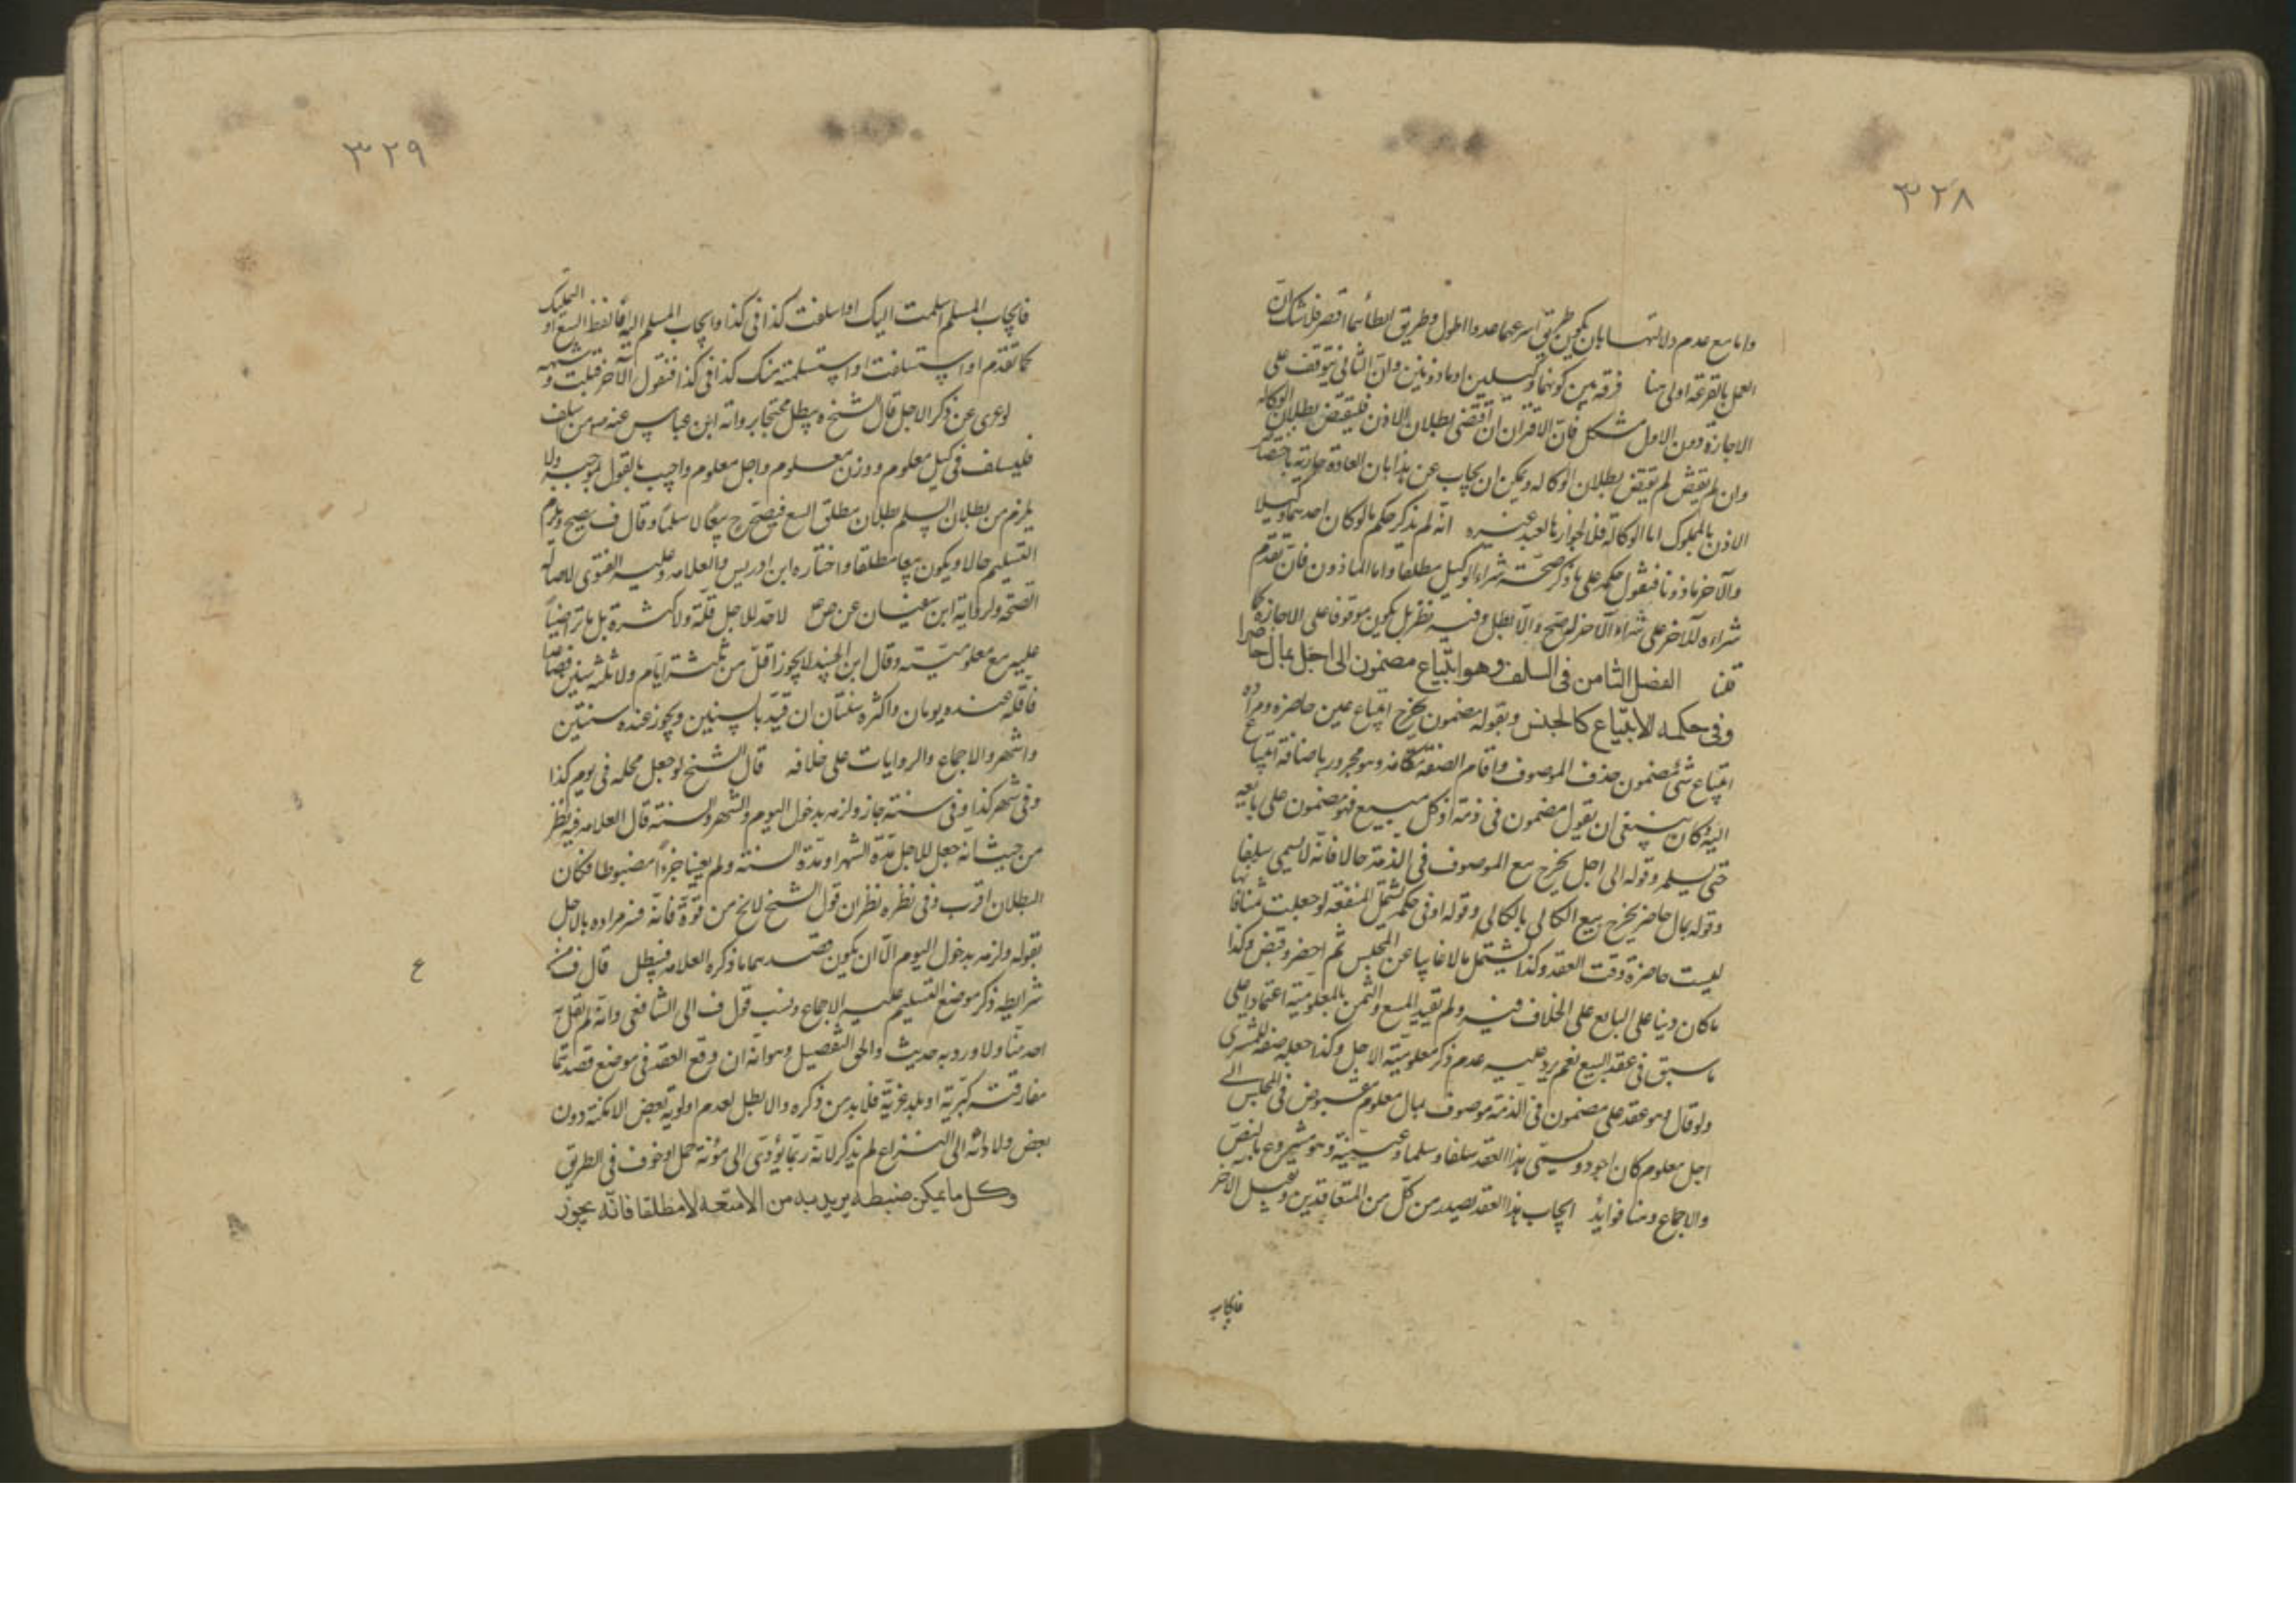 ٣٢٨
واما مع عدم دلالتها بان يكون طريق اسرعهما عدوا اطول وطريق ابطأهما اقصر فلا شك ان
العمل بالقرعة اولى هنا فرقه بين كونهما وكيلين او ماذونين وان الثاني يتوقف على
الاجازة دون الاول مشكل فان الاقتران ان اقتضى بطلان الاذن فليقتض بطلان الوكالة
وان لم يقتض لم يقتض بطلان الوكالة ويمكن ان يجاب عن هذا بان العادة جارية باختصاص
الاذن بالمملوك اما الوكالة فلا لجوازها لعبد غيره انه لم يذكر حكم ما لو كان احدهما وكيلا
والآخر ماذونا فنقول حكمه على ما ذكر صحة شراء الوكيل مطلقا واما الماذون فان تقدم
شراءه للآخر على شراء الآخر له صح والا بطل وفيه نظر بل يكون موقوفا على الاجازة كما
قلنا الفصل الثامن في السلف وهو ابتياع مضمون الى اجل بمال حاضر
وفي حكمه الابتياع كالجنس وبقوله مضمون يخرج ابتياع عين حاضرة ومراده
ابتياع شئ مضمون حذف الموصوف واقام الصفة مقامه وهو مجرور باضافة ابتياع
اليه كان ينبغي ان يقول مضمون في ذمة اذ كل مبيع فهو مضمون على بايعه
حتى يسلم وقوله الى اجل يخرج بيع الموصوف في الذمة حالا فانه لا يسمى سلفا
وقوله بمال حاضر يخرج بيع الكالي بالكالي وقوله او في حكمه يشتمل المنفعة لو جعلت ثمنا فانها
ليست حاضرة وقت العقد وكذا يشتمل مالا غايبا عن المجلس ثم احضر وقبض وكذا
ما كان دينا على البايع على الخلاف فيه ولم يقيد المبيع والثمن بالمعلومية اعتمادا على
ما سبق في عقد البيع نعم يرد عليه عدم ذكر معلومية الاجل وكذا جعله صفة للمشترى
ولو قال وهو عقد على مضمون في الذمة موصوف بمال معلوم مقبوض في المجلس الى
اجل معلوم كان اجود ويسمى هذا العقد سلفا وسلما وهو مشروع بالنص
والاجماع وهنا فوايد ايجاب هذا العقد يصدر من كل من المتعاقدين وقبول الآخر
فايجاب
٣٢٩
فايجاب المسلم اسلمت اليك او اسلفت كذا في كذا وايجاب المسلم اليه فالفظ البيع او التمليك
كما تقدم او استسلفت او استسلمت منك كذا في كذا فنقول الآخر قبلت وشبهه
لو عري عن ذكر الاجل قال الشيخ يبطل محتجا برواية ابن عباس عنه من سلف
فليسلف في كيل معلوم ووزن معلوم واجل معلوم واجيب بالقول بموجبه ولا
يلزم من بطلان السلم بطلان مطلق البيع فيصح ح بيعا لا سلما وقال ف يصح ويلزم
التسليم حالا ويكون بيعا مطلقا واختاره ابن ادريس والعلامة وعليه الفتوى لاصالة
الصحة ولرواية ابن سنان عن ص لا حد للاجل قلة ولا كثرة بل ما تراضيا
عليه مع معلوميته وقال ابن الجنيد لا يجوز اقل من ثلثة ايام ولا ثلث سنين فصاعدا
فاقله عنده يومان واكثره سنتان ان قيد بالسنين ويجوز عنده سنتين
واشهر والاجماع والروايات على خلافه قال الشيخ لو جعل محله في يوم كذا
وفي شهر كذا وفي سنة جاز ولزمه بدخول اليوم والشهر والسنة قال العلامة فيه نظر
من حيث انه جعل للاجل مدة الشهر او مدة السنة ولم يعينا جزءا مضبوطا فكان
البطلان اقرب وفي نظره نظر لان قول الشيخ لا يخ من قوة فانه فسر مراده بالاجل
بقوله ولزمه بدخول اليوم الا ان يكون قصدهما ما ذكره العلامة فيبطل قال ف من
شرايطه ذكر موضع التسليم عليه الاجماع ونسب قول ف الى الشافعي وانه لم يقل به
احد منا ولا ورد به حديث والحق التفصيل وهو انه ان وقع العقد في موضع قصدهما
مفارقته كبرية او بلد غربة فلا بد من ذكره والا بطل لعدم اولوية بعض الامكنة دون
بعض ولادائه الى النزاع لم يذكر لانه ربما يؤدى الى مؤنة حمل او خوف في الطريق
وكل ما يمكن ضبطه يريد به من الامتعة لا مطلقا فانه يجوز
ع